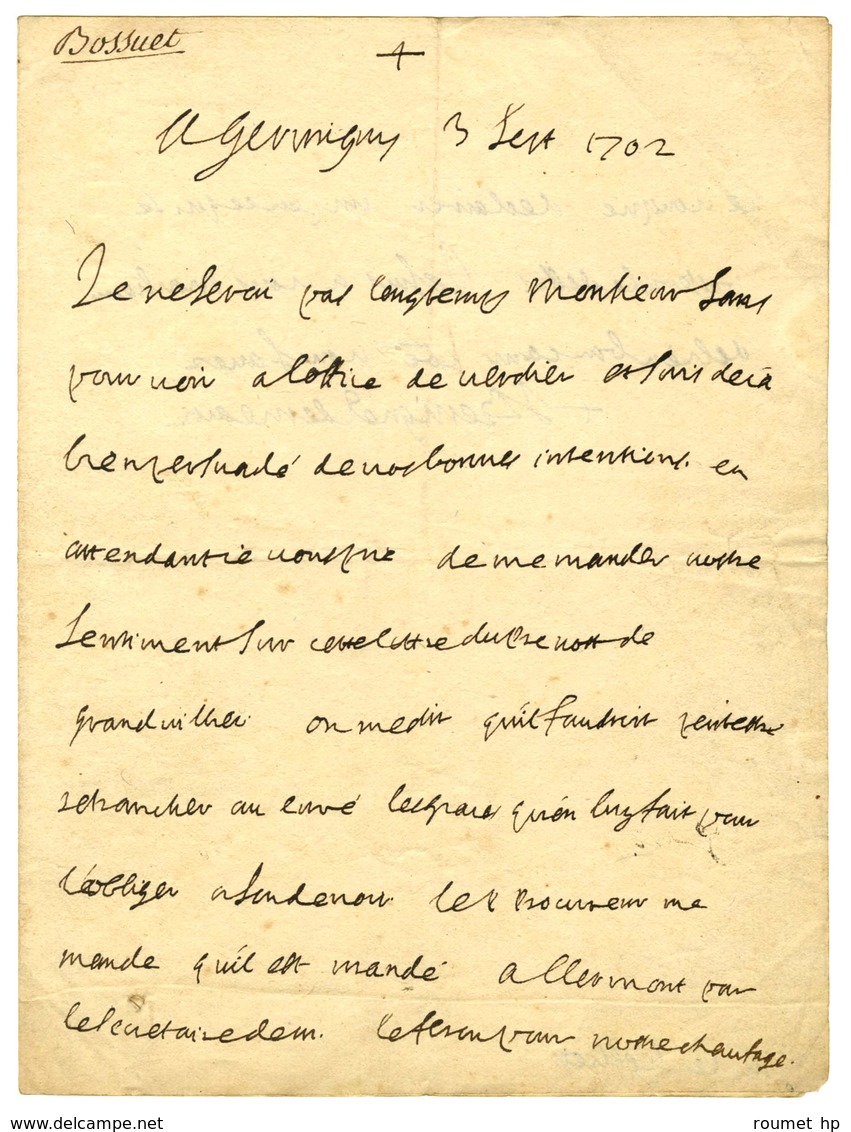 Bossuet
+
A Germigny 3 Sept 1702
Je ne serai pas longtemps Monsieur sans
pourvoir a l'office de verdier et suis deia
bien persuadé de vos bonnes intentions. en
attendant ie vous prie de me mander vostre
sentiment sur cette lettre du prevost de
grandvillier on me dit qu'il faudroit peutestre
retrancher au curé les graces qu'on luy fait pour
l'obliger a son devoir. le P Procureur me
mande qu'il est mandé a Clermont par
le secretaire de m. pour vostre chaufage.
roumet hp